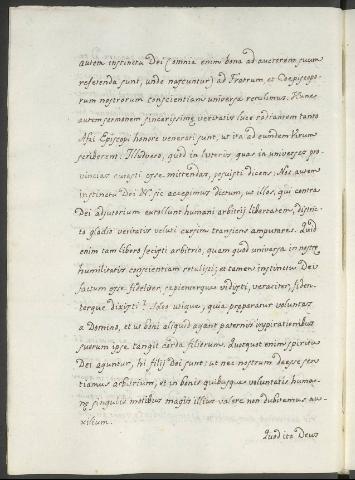 autem instinctu Dei (omnia enim bona ad auctorem suum
referenda sunt, unde nascuntur) ad Fratrum, et Coepiscopo-
rum nostrorum conscientiam universa retulimus. Hunc
autem sermonem sincerissimę veritatis luce radiantem tanto
Afri Episcopi honore venerati sunt, ut ita ad eundem Virum
scriberent: Illud vero, quod in literis quas in universas pro-
vincias curasti esse mittendas, posuisti dicens: Nos autem
instinctu Dei &c. sic accepimus dictum, ut illos, qui contra
Dei adjutorium extollunt humani arbitrij libertatem, distric-
to gladio veritatis velut cursim transiens amputares. Quid
enim tam libero fecisti arbitrio, quam quod universa in nostrę
humilitatis conscientiam retulisti; et tamen instinctu Dei
factum esse fideliter, sapienterque vidisti, veraciter, fiden-
terque dixisti? Ideo utique, quia pręparatur voluntas
a Domino, et ut boni aliquid agant paternis inspirationibus
suorum ipse tangit corda filiorum. Quotquot enim spiritu
Dei aguntur, hi filij Dei sunt: ut nec nostrum deesse sen-
tiamus arbitrium, et in bonis quibusque voluntatis huma-
nę singulis motibus magis illius valere non dubitemus au-
xilium.
Quod ita Deus